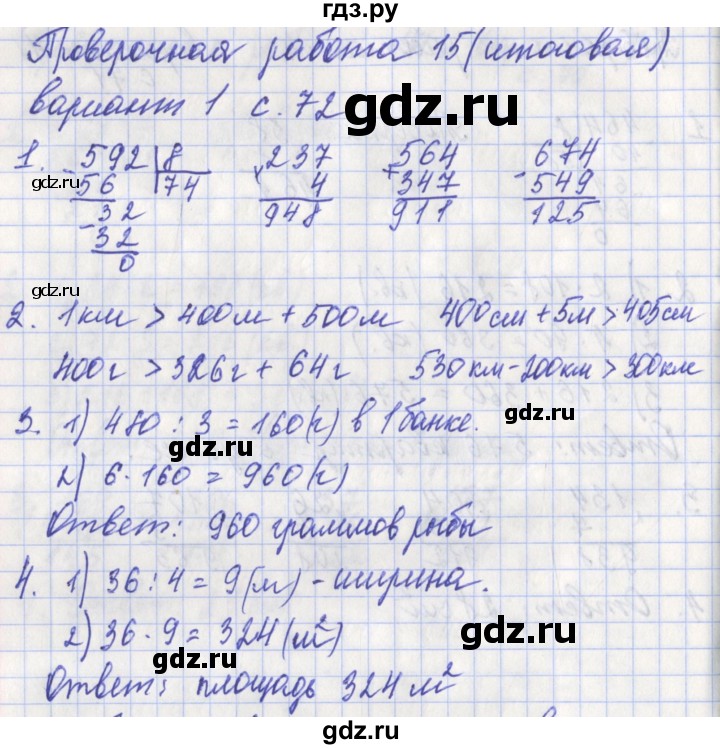 гдз.ру
Проверочная работа 15 (итоговая)
вариант 1 с. 72
gdz.ru
1. - 592 | 8 × 237 + 564 - 674
56 74 4 347 549
gdz.ru
- 32 948 911 125
32
0
gdz.ru
2. 1 км > 400 м + 500 м 400 см + 5 м > 405 см
400 г > 326 г + 64 г 530 км - 200 км > 300 км
3. 1) 480 : 3 = 160 (г) в 1 банке.
gdz.ru
2) 6 · 160 = 960 (г)
gdz.ru
Ответ: 960 граммов рыбы
4. 1) 36 : 4 = 9 (м) - ширина.
2) 36 · 9 = 324 (м²)
gdz.ru
gdz.ru
Ответ: площадь 324 м²
gdz.ru